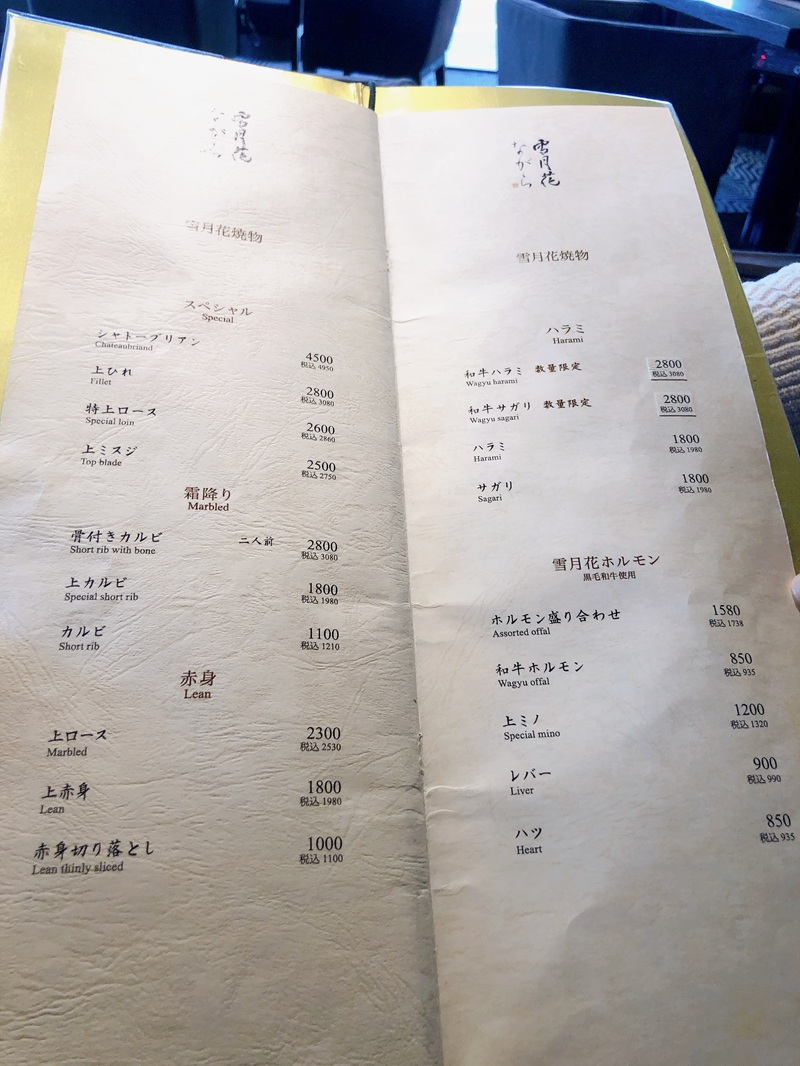 雪月花
ながら
雪月花焼物
スペシャル
Special
シャトーブリアン
Chateaubriand
4500
税込 4950
上ひれ
Fillet
2800
税込 3080
特上ロース
Special loin
2600
税込 2860
上ミスジ
Top blade
2500
税込 2750
霜降り
Marbled
骨付きカルビ 二人前
Short rib with bone
2800
税込 3080
上カルビ
Special short rib
1800
税込 1980
カルビ
Short rib
1100
税込 1210
赤身
Lean
上ロース
Marbled
2300
税込 2530
上赤身
Lean
1800
税込 1980
赤身切り落とし
Lean thinly sliced
1000
税込 1100
雪月花
ながら
雪月花焼物
ハラミ
Harami
和牛ハラミ 数量限定
Wagyu harami
2800
税込 3080
和牛サガリ 数量限定
Wagyu sagari
2800
税込 3080
ハラミ
Harami
1800
税込 1980
サガリ
Sagari
1800
税込 1980
雪月花ホルモン
黒毛和牛使用
ホルモン盛り合わせ
Assorted offal
1580
税込 1738
和牛ホルモン
Wagyu offal
850
税込 935
上ミノ
Special mino
1200
税込 1320
レバー
Liver
900
税込 990
ハツ
Heart
850
税込 935